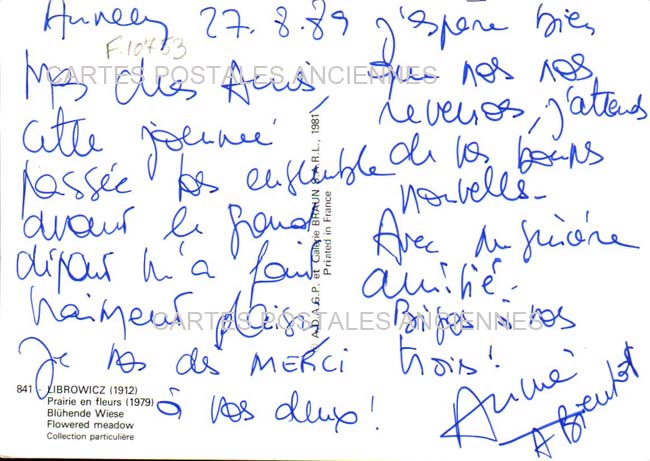 Annecy 27.8.89
F.10753
CARTES POSTALES ANCIENNES
Mes chers Amis
cette journée
passée ensemble
avant le grand
départ m'a fait
vraiment plaisir
Je dis MERCI
à vos deux !
j'espère bien
que nos nos
reverros, j'attends
de vos bonnes
nouvelles.
Avec ma sincère
amitié.
Bises à vos
trois !
A Bientôt
A.D.A.G.P. et Galerie BRAUN S.A.R.L., 1981
Printed in France
CARTES POSTALES ANCIENNES
841 - LIBROWICZ (1912)
Prairie en fleurs (1979)
Blühende Wiese
Flowered meadow
Collection particulière